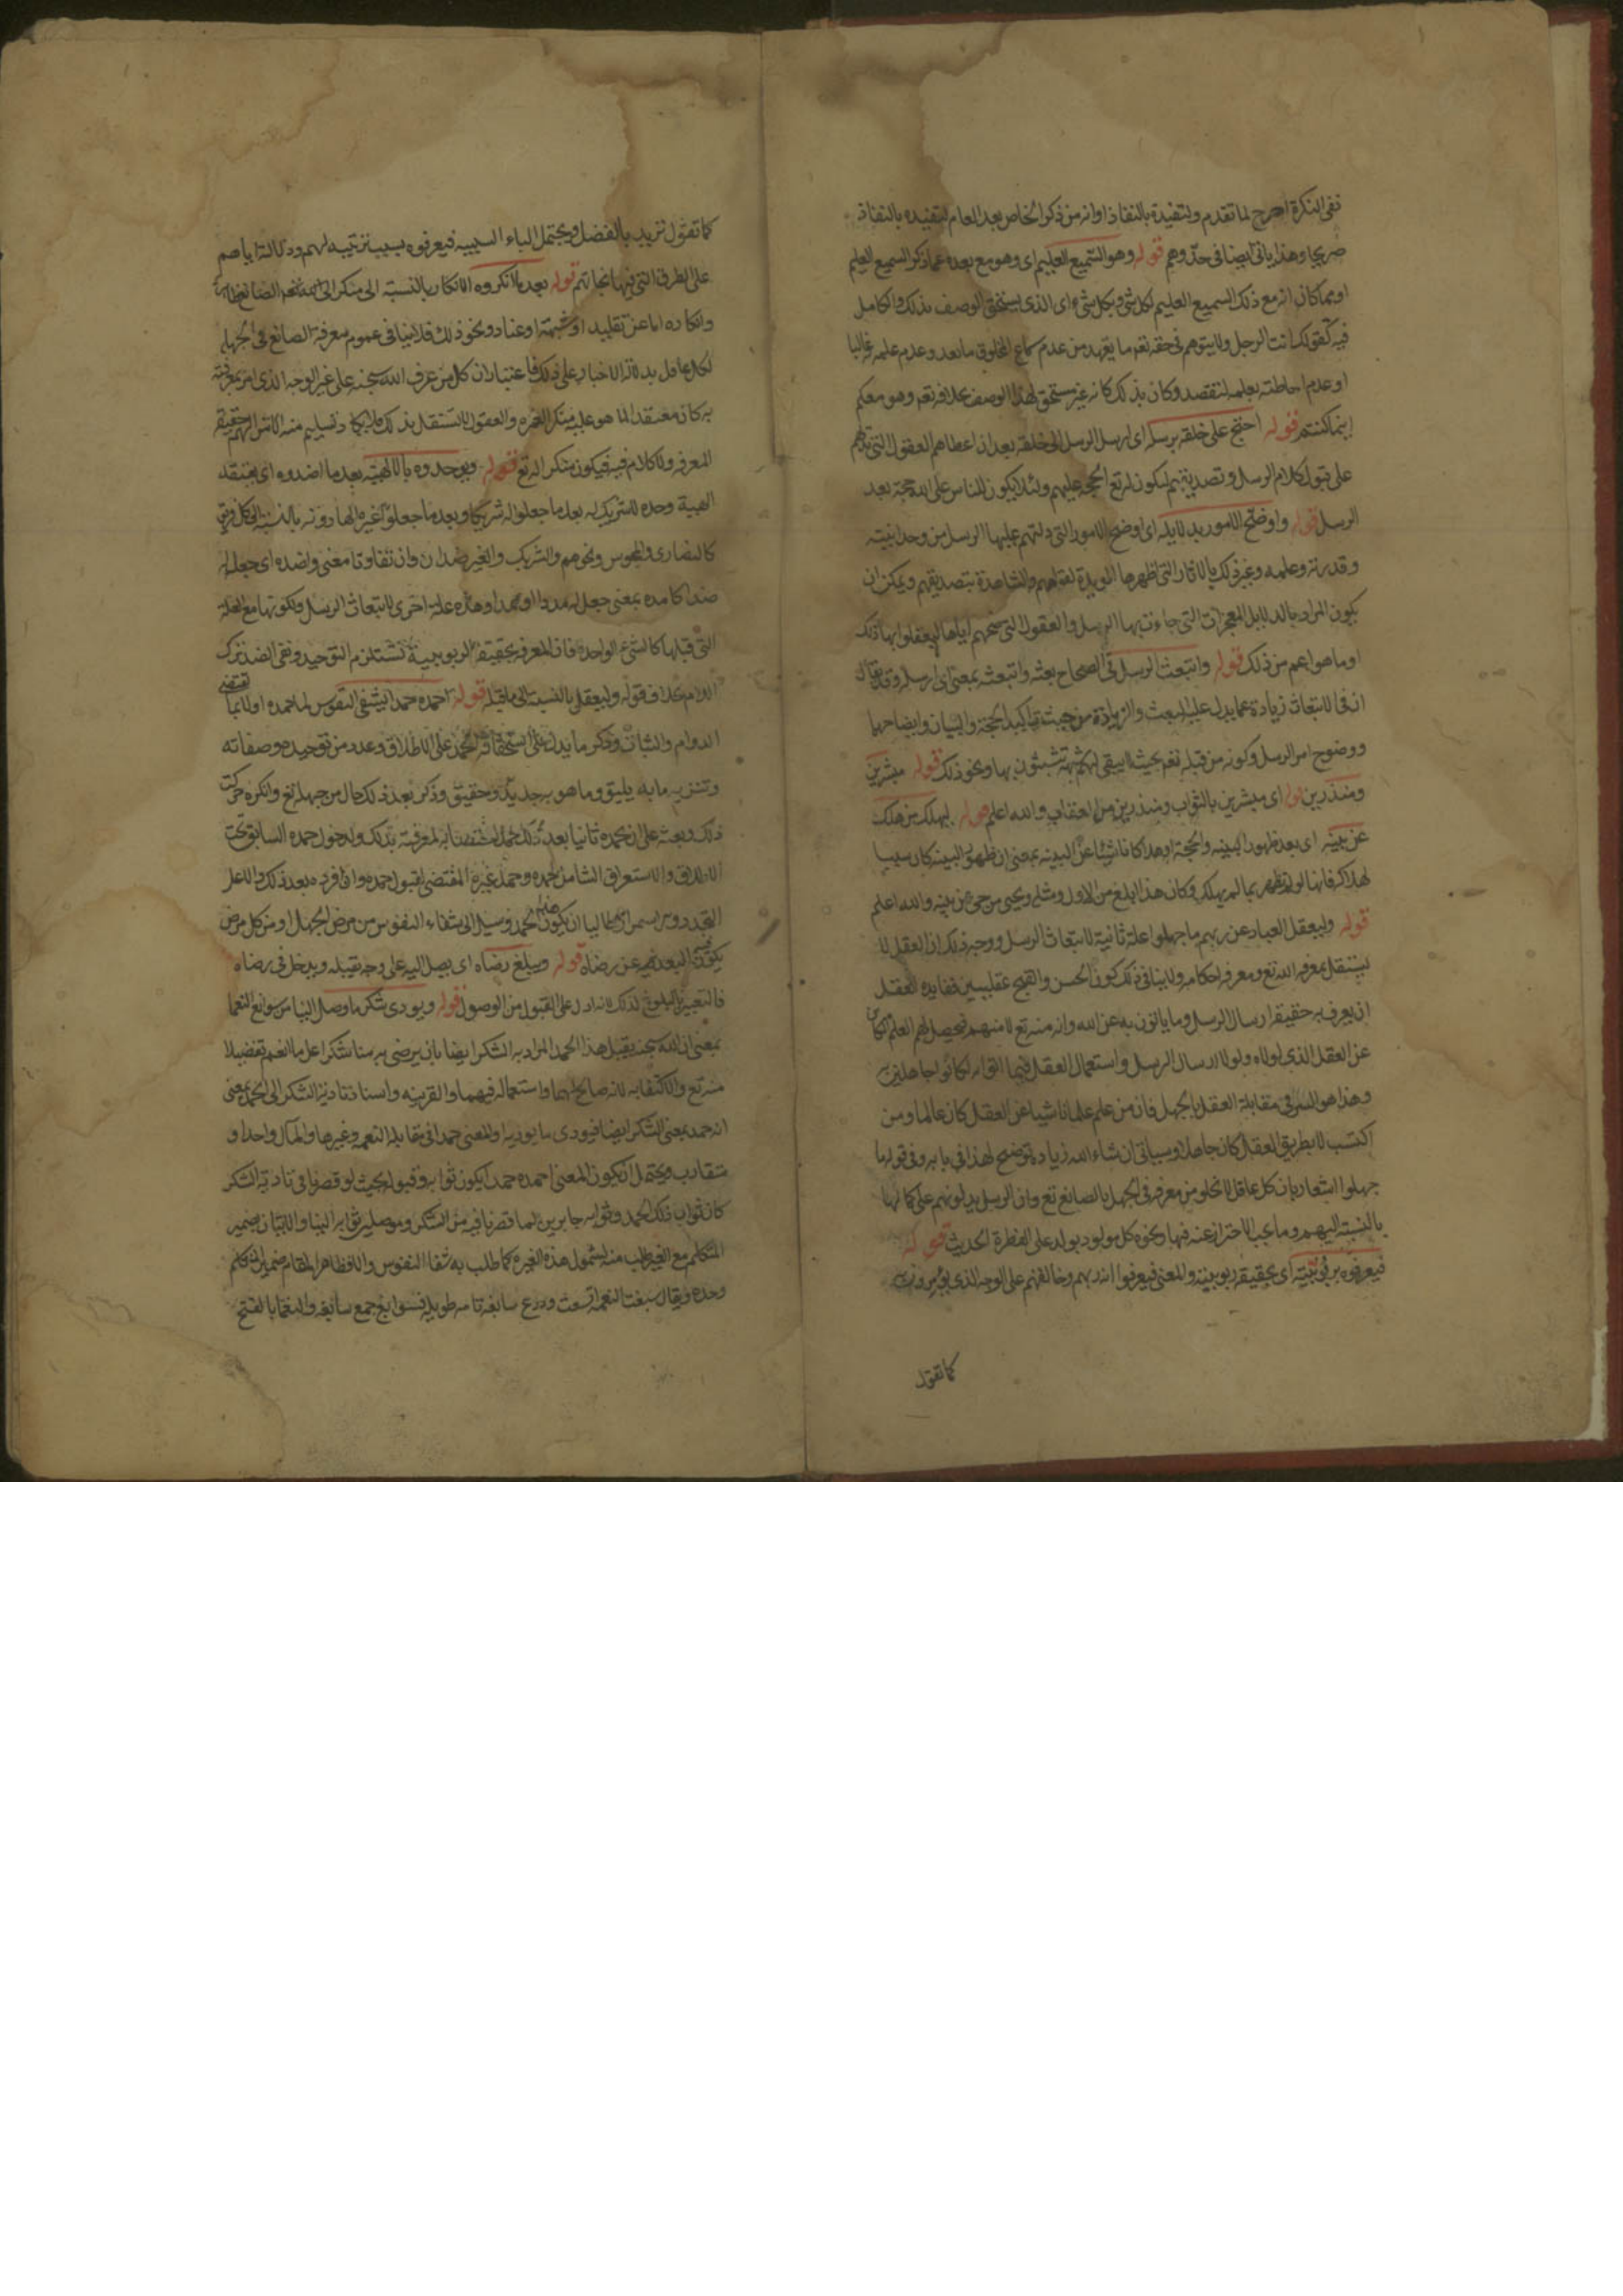 نفى النكرة احرج لما تقدم ولتقيدة بالنفاذ او انه من ذكر الخاص بعد العام لتقييده بالنفاذ
صريحا وهذا ياتى ايضا فى حد وهم قوله وهو السميع العليم اى وهو مع بعده عما ذكر السميع العليم
او مما كان انه مع ذلك السميع العليم لكل شئ وبكل شئ اى الذى يستحق الوصف بذلك والكامل
فيه كقولك انت الرجل ولا يتوهم فى حقه تعم ما يعهد من عدم سماع المخلوق ما بعد وعدم علمه غالبا
او عدم احاطته بعلمه لنقصه وكان بذلك كانه غير مستحق لهذا الوصف بخلافه تعم وهو معكم
اينما كنتم قوله احتج على خلقه برسله اى ارسل الرسل الى خلقه بعد ان اعطاهم العقول التى تدلهم
على قبول كلام الرسل وتصديقهم ليكون له تع الحجة عليهم ولئلا يكون للناس على الله حجة بعد
الرسل قوله واوضح الامور بدلايله اى اوضح الامور التى دلتهم عليها الرسل من وحدانيته
وقدرته وعلمه وغير ذلك بالاثار التى اظهرها المويدة لقولهم والشاهدة بتصديقهم ويمكن ان
يكون المراد بالدلايل المعجزات التى جاءت بها الرسل والعقول التى منحهم اياها ليعقلوا بها ذلك
او ما هو اعم من ذلك قوله وابتعث الرسل فى الصحاح بعثه وابتعثه بمعنى اى ارسله وقد يقال
ان فى الابتعاث زيادة عما يدل عليه البعث والزيادة من حيث تاكيد الحجة والبيان وايضاحها
ووضوح امر الرسل وكونه من قبله تعم بحيث لا يبقى لهم شبهة يتشبثون بها ونحو ذلك قوله مبشرين
ومنذرين اى مبشرين بالثواب ومنذرين من العقاب والله اعلم قوله ليهلك من هلك
عن بينه اى بعد ظهور البينه والحجة او هلاكا ناشئا عن البينه بمعنى ان ظهور البينه كان سببا
لهلاكه فانها لو لم تظهر بما لم يهلك وكان هذا ابلغ من الاول ومثله ويحيى من حى عن بينه والله اعلم
قوله وليعقل العباد عن ربهم ما جهلوا علة ثانية لابتعاث الرسل ووجه ذلك ان العقل لا
يستقل بمعرفه الله تع ومعرفه احكامه ولا ينافى ذلك كون الحسن والقبح عقليين ففايده العقل
ان يعرف به حقيقه ارسال الرسل وما ياتون به عن الله وانه منه تع لا منهم فيحصل لهم العلم
عن العقل الذى لولاه ولولا ارسال الرسل واستعمال العقل فيما اتوا به لكانوا جاهلين
وهذا هو السر فى مقابلة العقل بالجهل فان من علم علما ناشيا عن العقل كان عالما ومن
اكتسب لا بطريق العقل كان جاهلا وسياتى ان شاء الله زيادة توضيح لهذا فى بابه وفى قوله ما
جهلوا اشعار بان كل عاقل لا تخلو من معرفه فى الجهل بالصانع تع وان الرسل يدلونهم على كمالها
بالنسبة اليهم وما يجب الاحتراز عنه فيها ونحوه كل مولود يولد على الفطرة الحديث قوله
فيعرفوه بربوبيته اى بحقيقه ربوبيته والمعنى فيعرفوا انه ربهم وخالقهم على الوجه الذى
كما تقول
كما تقول تريد بالفضل ويحتمل الباء السببيه فيعرفوه بسبب تربيته لهم ودلالته اياهم
على الطرق التى فيها نجاتهم قوله بعد ما انكروه الانكار بالنسبة الى منكر
وانكاره اما عن تقليد او شبهة او عناد ونحو ذلك فلا ينافى عموم معرفة الصانع
لكل عاقل بدلالة الاخبار على ذلك فاعتبار ان كل من عرف الله سبحنه على غير الوجه الذى امر بمعرفته
به كان معتقدا لما هو عليه منكرا لغيره والعقول لا تستقل بذلك
المعرفه ولا كلام فيه فيكون منكرا له تع قوله ويوحدوه بالالهية بعد ما اضدوه اى
الهية وحده لا شريك له بعد ما جعلوا له شريكا وبعد ما جعلوا غيره الها دونه بالنسبة الى كل فريق
كالنصارى والمجوس ونحوهم والشريك والغير ضدان وان تفاوتا معنى واضده اى جعل له
ضدا كامده بمعنى جعل له مددا او ممدا وهذه علة اخرى لابتعاث الرسل ولكونها مع العله
التى قبلها كالشئ الواحد فان المعرفه بحقيقه الربوبية تستلزم التوحيد ونفى الضد ترك
اللام بخلاف قوله وليعقل بالنسبة الى ما قبله قوله احمده حمدا يشفى النفوس لما حمده اولا بما يقتضى
الدوام والثبات وذكر ما يدل على استحقاقه الحمد على الاطلاق وعدد من توحيده وصفاته
وتنزيهه ما به يليق وما هو به جدير وحقيق وذكر بعد ذلك حال من جهله تع وانكره
ذلك وبعثه على ان يحمده ثانيا بعد ذلك بتلك ودخول حمده السابق تحت
الاطلاق والاستغراق الشامل لحمده وحمد غيره المقتضى لقبول حمده وان افرده بعد ذلك
التجدد والاستمرار طالبا ان يكون الحمد وسيلة الى شفاء النفوس من مرض الجهل او من كل مرض
عن رضاه قوله ويبلغ رضاه اى يصل اليه على وجه تقبله ويدخل فى رضاه
فالتعبير بالبلوغ لذلك لانه ادل على القبول من الوصول قوله ويودى شكر ما وصل الينا من سوابغ النعما
بمعنى ان الله سبحنه يقبل هذا الحمد المراد به الشكر ايضا بان يرضى به منا شكرا على ما انعم تفضيلا
منه تع والاكتفا به لانه صالح لهما واستعماله فيهما والقرينه واسناد تاديه الشكر الى الحمد بمعنى
انه حمد بمعنى الشكر ايضا فيودى ما يوديه او المعنى حمدا فى مقابله النعمه وغيرها والمآل واحد او
متقارب ويحتمل ان يكون المعنى احمده حمدا يكون ثوابه وقبوله بحيث لو قصرنا فى تادية الشكر
كان ثواب ذلك الحمد وثوابه جابرين لما قصرنا فيه من الشكر وموصلين ثوابه الينا والاتيان بضمير
المتكلم مع الغير طلب منه لشمول هذه الغيره كما طلب به شفا النفوس والا فظاهر المقام ضمير المتكلم
وحده ويقال سبغت النعمه اتسعت ودرع سابغه تامه طويله فسوابغ جمع سابغه والنعما بالفتح